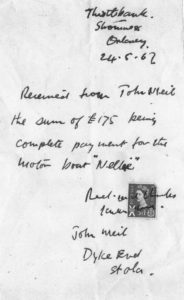 Stromness
Orkney
24-5-67
Received from John Meil
the sum of £175 being
complete payment for the
motor boat "Nellie"
John Meil
Dyke End